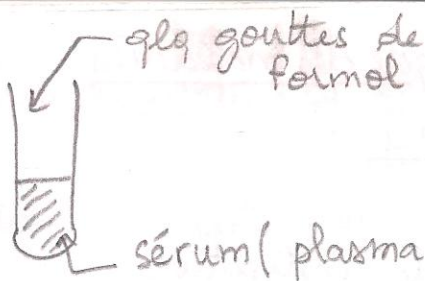 qlq gouttes de
formol
sérum ( plasma